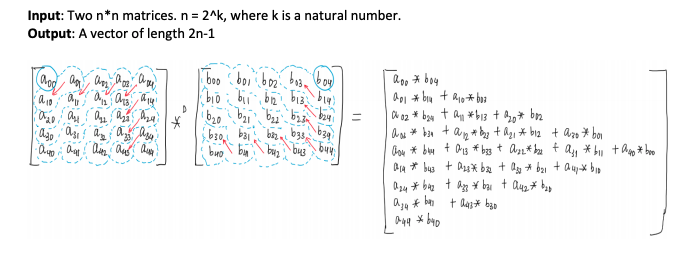 Input: Two n*n matrices. n = 2^k, where k is a natural number.
Output: A vector of length 2n-1
a00 a01 a02 a03 a04
a10 a11 a12 a13 a14
a20 a21 a22 a23 a24
a30 a31 a32 a33 a34
a40 a41 a42 a43 a44
*D
b00 b01 b02 b03 b04
b10 b11 b12 b13 b14
b20 b21 b22 b23 b24
b30 b31 b32 b33 b34
b40 b41 b42 b43 b44
=
a00 * b04
a01 * b14 + a10 * b03
a02 * b24 + a11 * b13 + a20 * b02
a03 * b34 + a12 * b23 + a21 * b12 + a30 * b01
a04 * b44 + a13 * b33 + a22 * b22 + a31 * b11 + a40 * b00
a14 * b43 + a23 * b32 + a32 * b21 + a41 * b10
a24 * b42 + a33 * b31 + a42 * b20
a34 * b41 + a43 * b30
a44 * b40